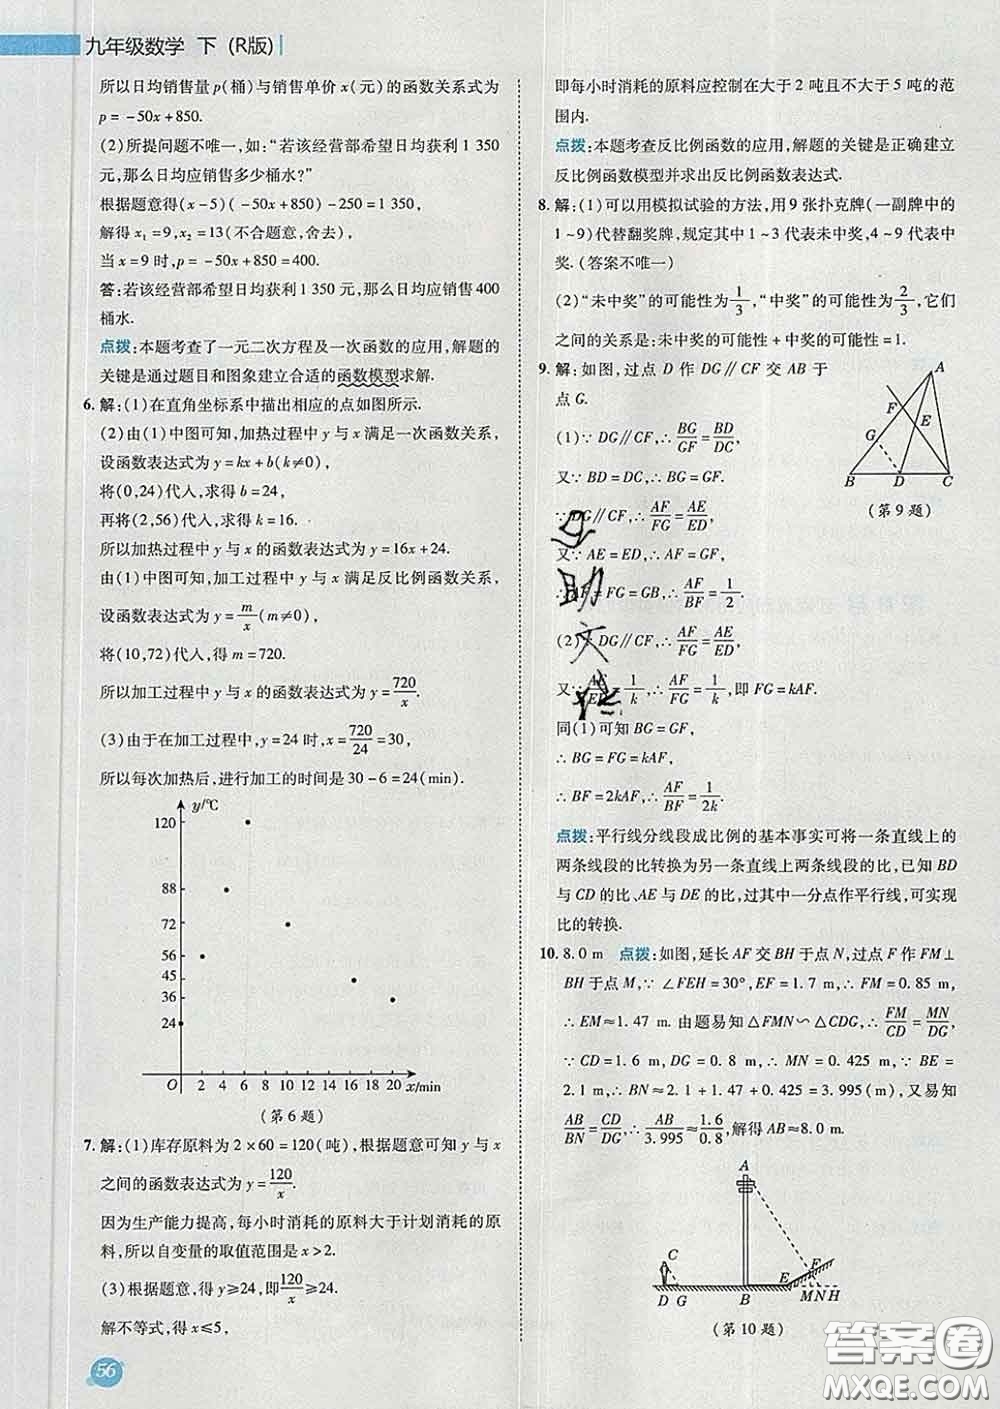 九年级数学 下 (R版)
所以日均销售量 p(桶)与销售单价 x(元)的函数关系式为
p=-50x+850.
(2)所提问题不唯一,如:“若该经营部希望日均获利1 350
元,那么日均应销售多少桶水?”
根据题意得(x-5)(-50x+850)-250=1 350,
解得 x₁=9,x₂=13(不合题意,舍去),
当 x=9 时,p=-50x+850=400.
答:若该经营部希望日均获利1 350元,那么日均应销售400
桶水.
点拨:本题考查了一元二次方程及一次函数的应用,解题的
关键是通过题目和图象建立合适的函数模型求解.
6. 解:(1)在直角坐标系中描出相应的点如图所示.
(2)由(1)中图可知,加热过程中 y 与 x 满足一次函数关系,
设函数表达式为 y=kx+b(k≠0),
将(0,24)代入,求得 b=24,
再将(2,56)代入,求得 k=16.
所以加热过程中 y 与 x 的函数关系式为 y=16x+24.
由(1)中图可知,加工过程中 y 与 x 满足反比例函数关系,
设函数表达式为 y=m/x(m≠0),
将(10,72)代入,得 m=720.
所以加工过程中 y 与 x 的函数表达式为 y=720/x.
(3)由于在加工过程中,y=24 时,x=720/24=30,
所以每次加热后,进行加工的时间是30-6=24(min).
y/℃
120
88
72
56
45
36
24
O 2 4 6 8 10 12 14 16 18 20 x/min
(第6题)
7. 解:(1)库存原料为2×60=120(吨),根据题意可知 y 与 x
之间的函数表达式为 y=120/x.
因为生产能力提高,每小时消耗的原料大于计划消耗的原
料,所以自变量的取值范围是 x>2.
(3)根据题意,得 y≥24,即120/x≥24.
解不等式,得 x≤5,
56
即每小时消耗的原料应控制在大于2吨且不大于5吨的范
围内.
点拨:本题考查反比例函数的应用,解题的关键是正确建立
反比例函数模型并求出反比例函数表达式.
8. 解:(1)可以用模拟试验的方法,用9张扑克牌(一副牌中的
1~9)代替翻奖牌,规定其中1~3代表未中奖,4~9代表中
奖.(答案不唯一)
(2)“未中奖”的可能性为1/3,“中奖”的可能性为2/3,它们
之间的关系是:未中奖的可能性+中奖的可能性=1.
9. 解:如图,过点 D 作 DG∥CF 交 AB 于
点 G.
(1)∵DG∥CF,∴BG/GF=BD/DC,
又∵BD=DC,∴BG=GF.
∵DG∥CF,∴AF/FG=AE/ED,
又∵AE=ED,∴AF=GF,
∴AF=FG=GB,∴AF/BF=1/2.
(2)∵DG∥CF,∴AF/FG=AE/ED,
又∵AE/ED=1/k,∴AF/FG=1/k,即 FG=kAF.
同(1)可知 BG=GF,
∴BG=FG=kAF,
∴BF=2kAF,∴AF/BF=1/2k.
A
F
E
G
B D C
(第9题)
点拨:平行线分线段成比例的基本事实可将一条直线上的
两条线段的比转换为另一条直线上两条线段的比,已知 BD
与 CD 的比、AE 与 DE 的比,过其中一分点作平行线,可实现
比的转换.
10. 8.0 m 点拨:如图,延长 AF 交 BH 于点 N,过点 F 作 FM⊥
BH 于点 M,∵∠FEH=30°,EF=1.7 m,∴FM=0.85 m,
∴EM≈1.47 m. 由题易知△FMN∽△CDG,∴FM/CD=MN/DG,
∵CD=1.6 m,DG=0.8 m,∴MN=0.425 m,∵BE=
2.1 m,∴BN≈2.1+1.47+0.425=3.995(m),又易知
AB/BN=CD/DG,∴AB/3.995≈1.6/0.8,解得 AB≈8.0 m.
A
C
E F
D G B M N H
(第10题)
答案圈
MXQE.COM